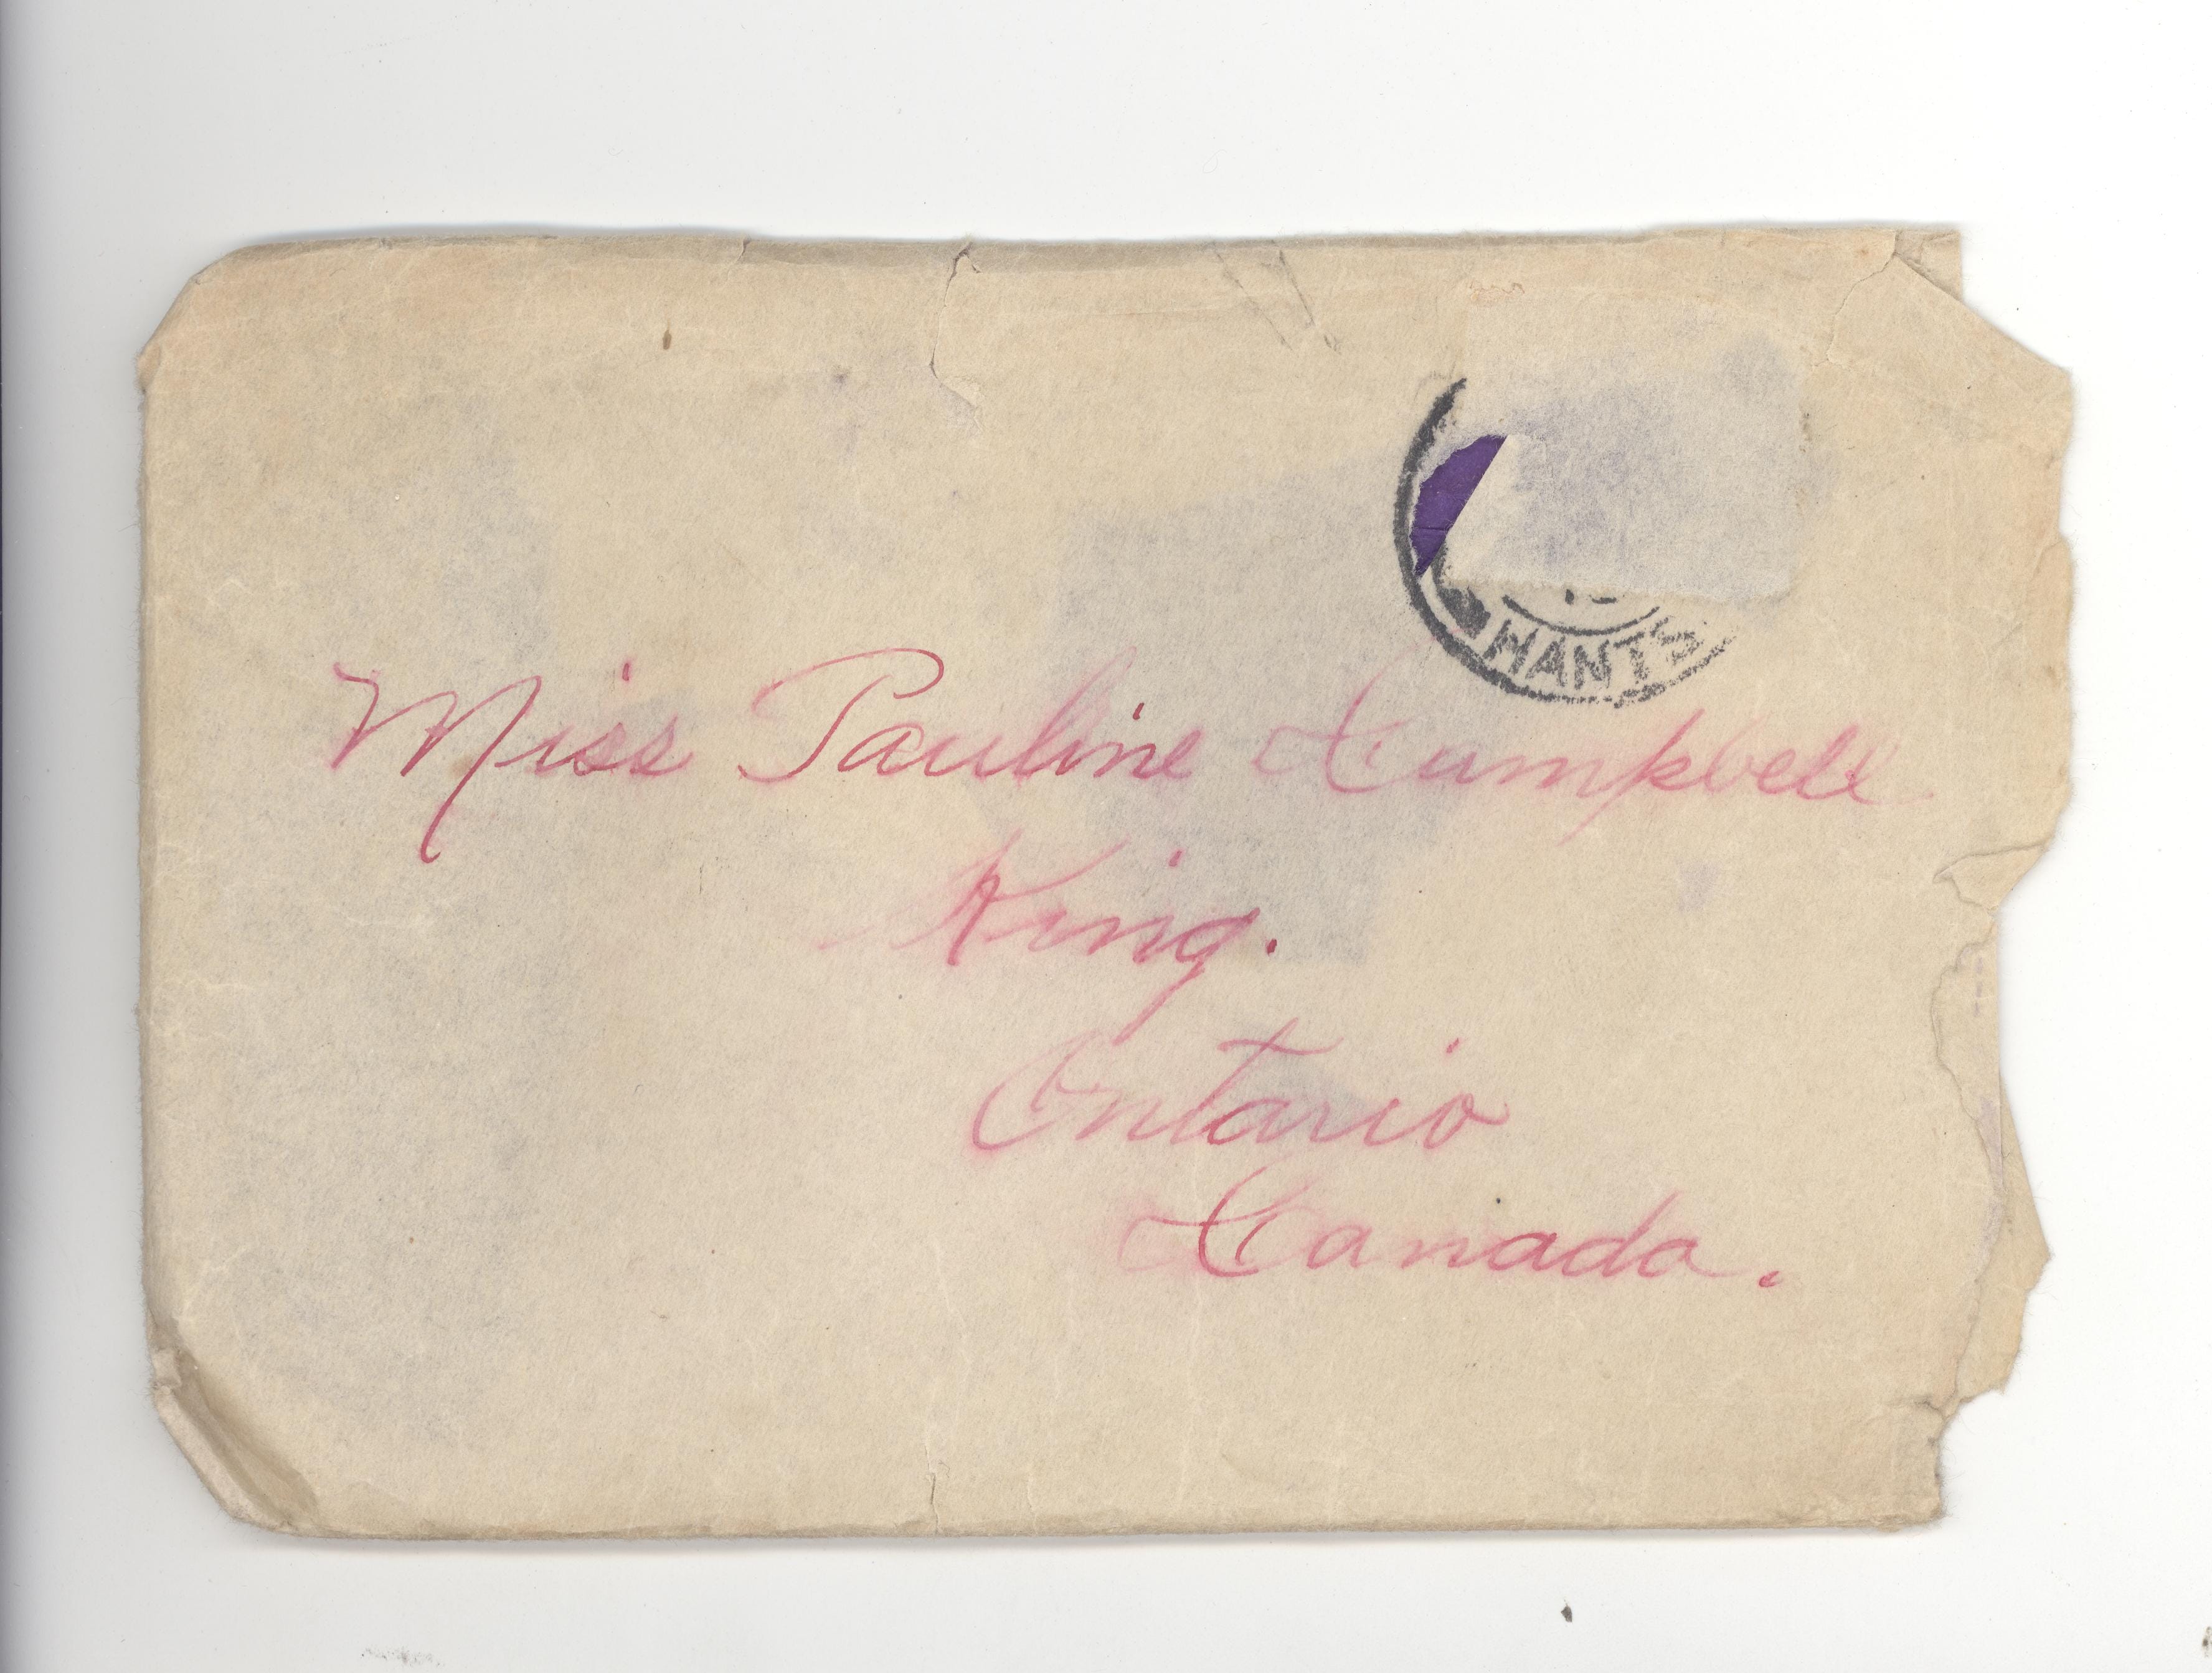 HANTS
Miss Pauline Campbell
King.
Ontario
Canada.